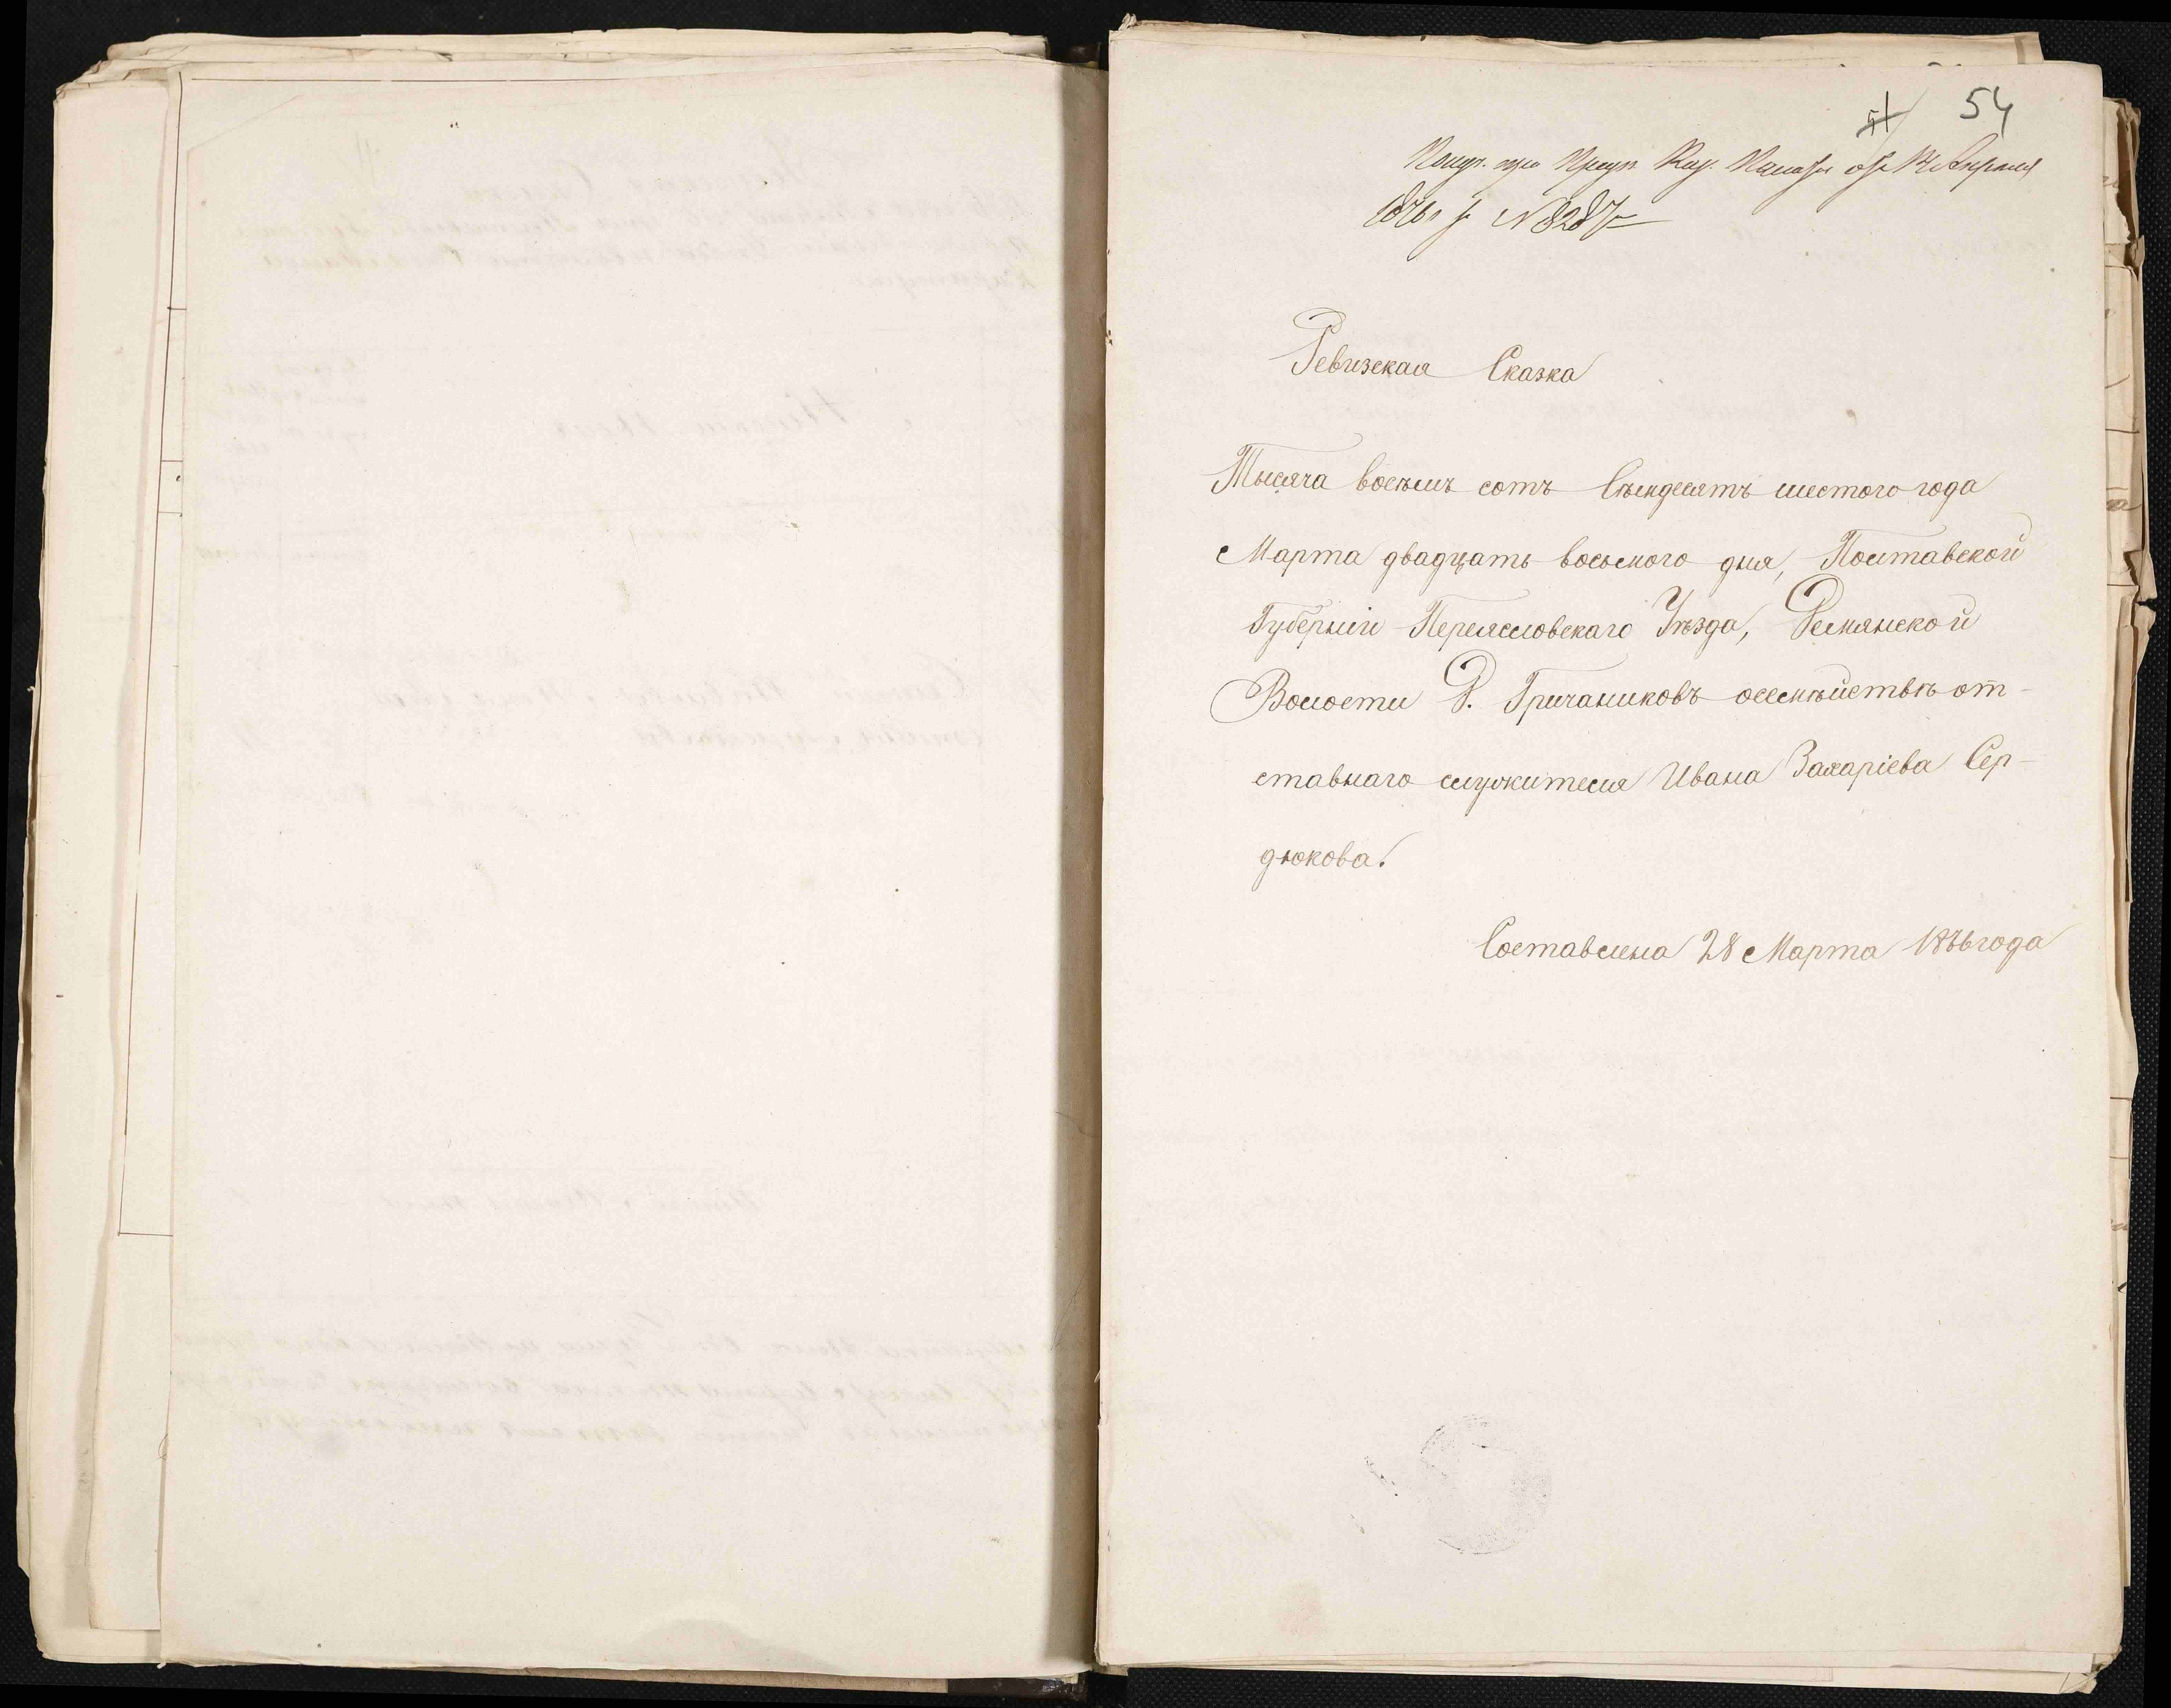 54
51
При предп. Каз. Палаты отъ 14 Апрѣля
1876 г. № 8287
Ревизская Сказка
Тысяча восемь сотъ Сѣмдесятъ шестого года
Марта двадцать восьмого дня, Полтавской
Губерніи Переясловскаго Уѣзда, Демянской
Волости Д. Гричаниковъ осемѣйствѣ от-
ставнаго служителя Ивана Захаріева Сер-
дюкова.
Составлена 28 Марта 1876 года